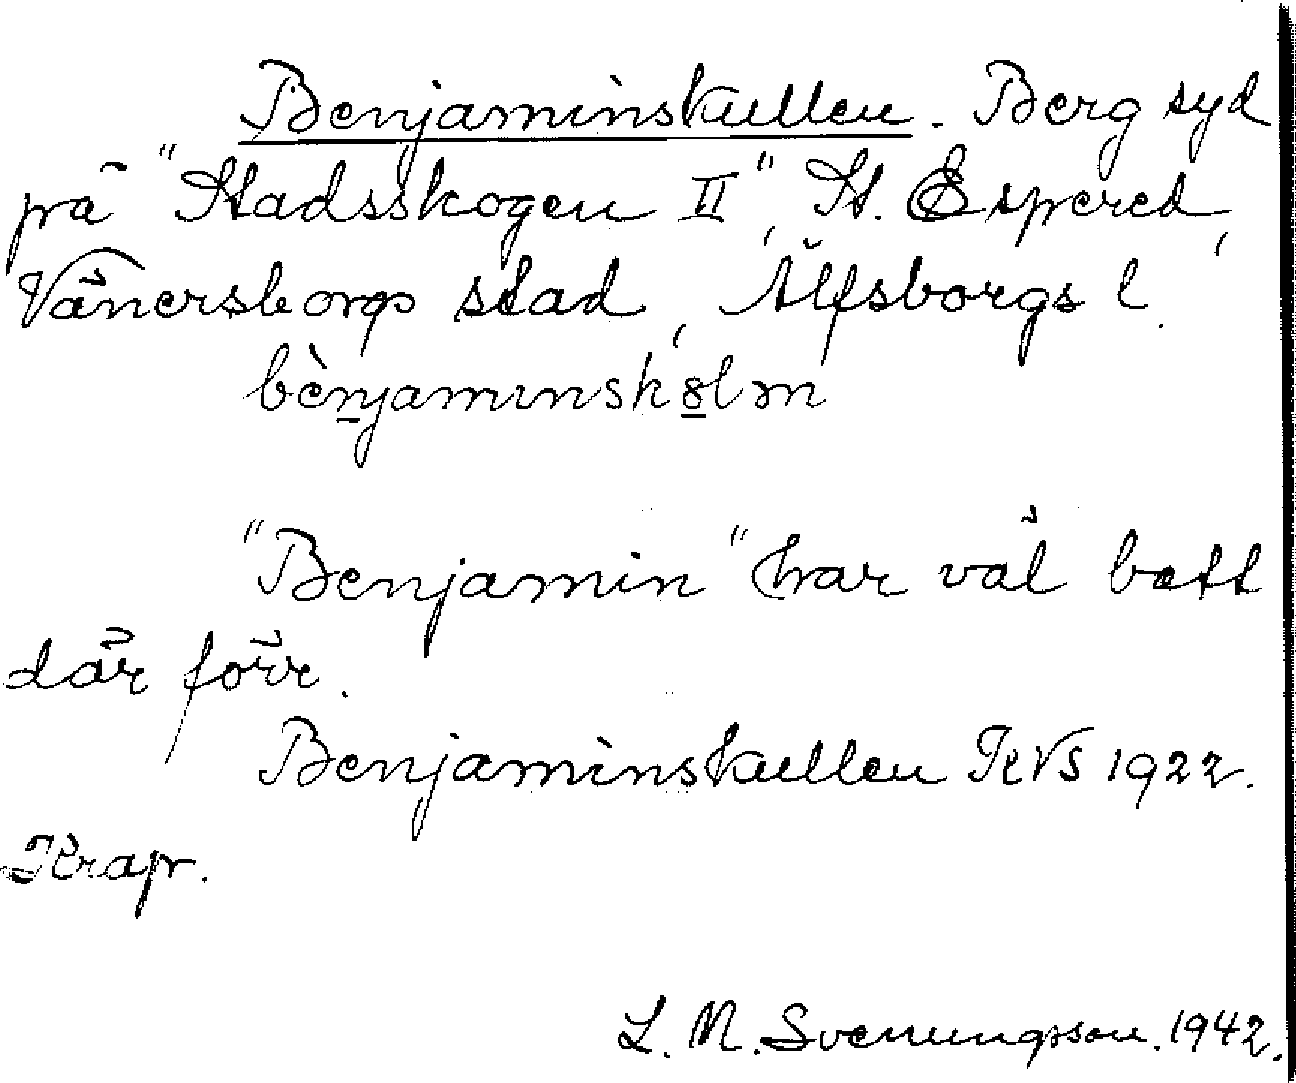 Benjaminskullen. Berg syd
på "Stadsskogen II", St. Espered,
Vänersborgs stad, Älfsborgs l.
bènjaminskolm
"Benjamin" har väl bott
där förr.
Benjaminskullen KVS 1922.
Krapr.
L. N. Svenungsson. 1942.